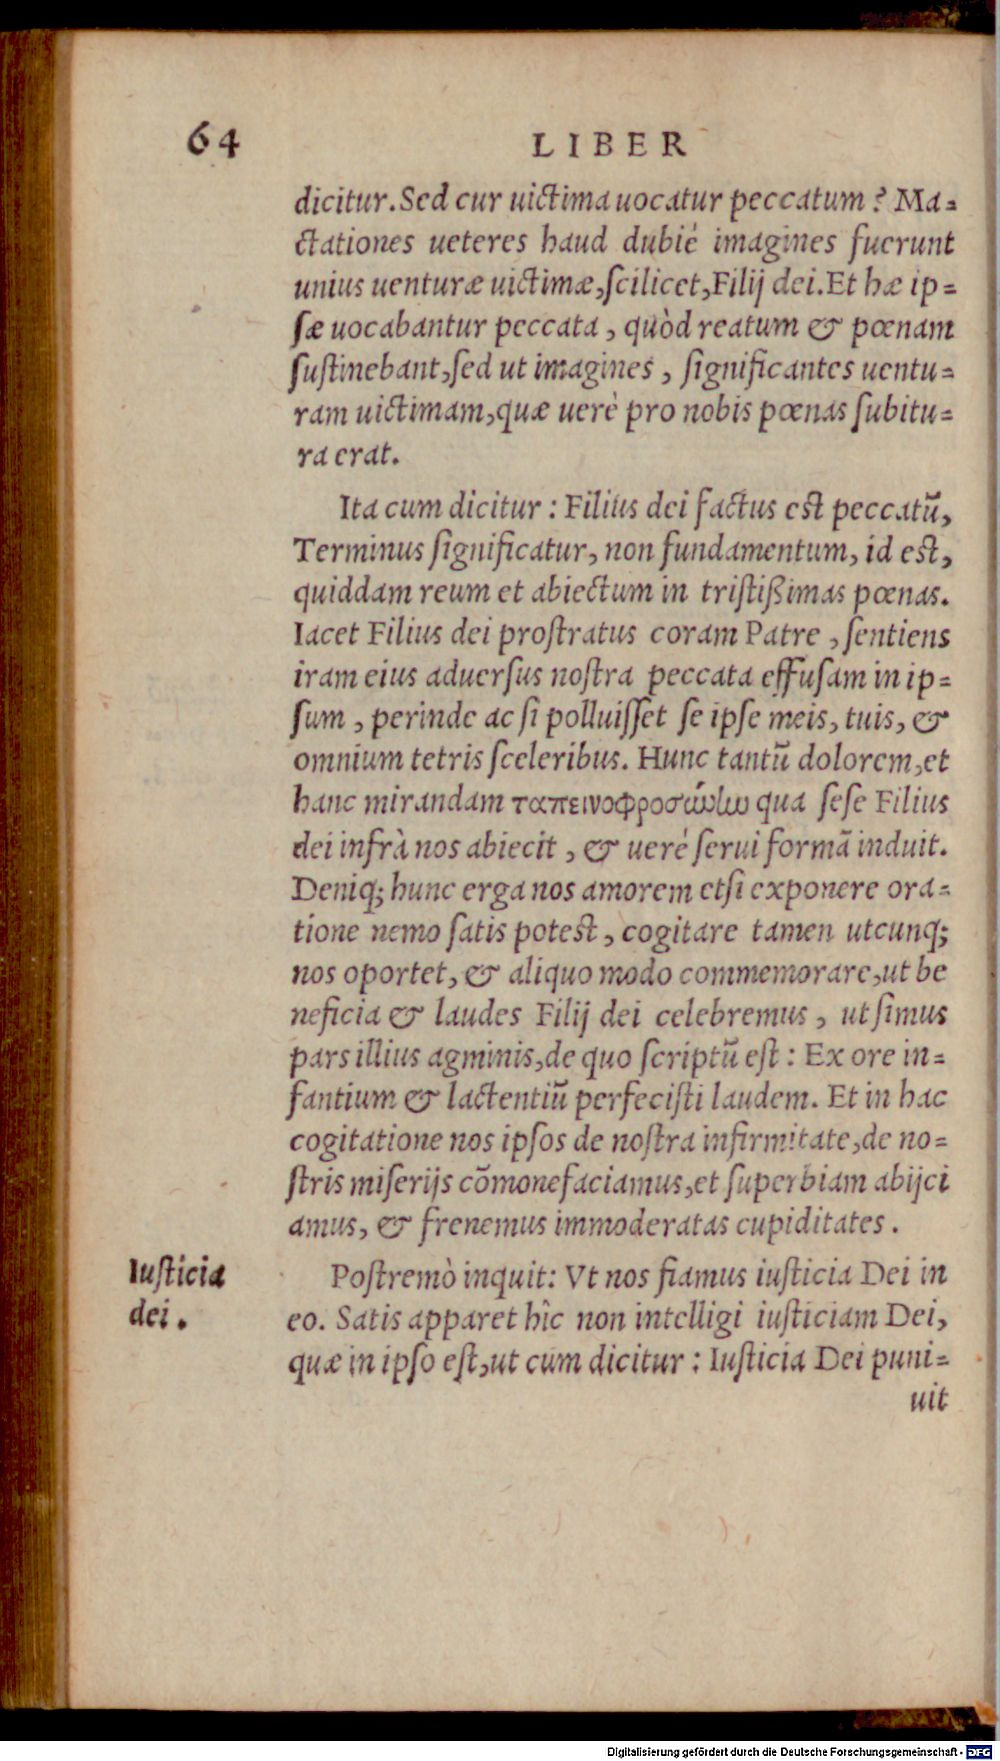 64 LIBER
dicitur. Sed cur uictima uocatur peccatum? Ma-
ctationes ueteres haud dubié imagines fuerunt
unius uenturæ uictimæ, ſcilicet, Filij dei. Et hæ ip-
ſæ uocabantur peccata, quòd reatum & pœnam
ſuſtinebant, ſed ut imagines, ſignificantes uentu-
ram uictimam, quæ uerè pro nobis pœnas ſubitu-
ra erat.
Ita cum dicitur: Filius dei factus est peccatũ,
Terminus ſignificatur, non fundamentum, id est,
quiddam reum et abiectum in triſtißimas pœnas.
Iacet Filius dei proſtratus coram Patre, ſentiens
iram eius aduerſus noſtra peccata effuſam in ip-
ſum, perinde ac ſi polluiſſet ſe ipſe meis, tuis, &
omnium tetris ſceleribus. Hunc tantũ dolorem, et
hanc mirandam ταπεινοφροσύνην qua ſeſe Filius
dei infrà nos abiecit, & ueré ſerui formã induit.
Deniq; hunc erga nos amorem etſi exponere ora-
tione nemo ſatis potest, cogitare tamen utcunq;
nos oportet, & aliquo modo commemorare, ut be
neficia & laudes Filij dei celebremus, ut ſimus
pars illius agminis, de quo ſcriptũ eſt: Ex ore in-
fantium & lactentiũ perfeciſti laudem. Et in hac
cogitatione nos ipſos de noſtra infirmitate, de no-
ſtris miſerijs cõmonefaciamus, et ſuperbiam abijci
amus, & frenemus immoderatas cupiditates.
Iuſticia
dei.
Poſtremò inquit: Vt nos fiamus iuſticia Dei in
eo. Satis apparet hîc non intelligi iuſticiam Dei,
quæ in ipſo eſt, ut cum dicitur: Iuſticia Dei puni-
uit
Digitalisierung gefördert durch die Deutsche Forschungsgemeinschaft - DFG